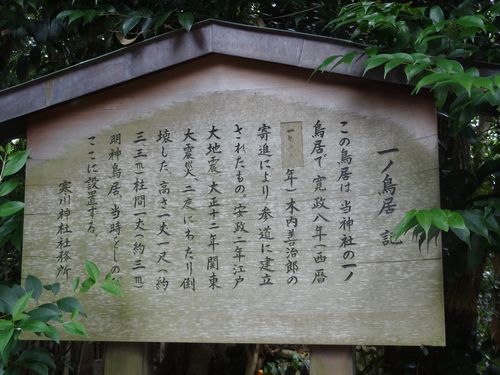 一ノ鳥居 記
この鳥居は当神社の一ノ
鳥居で 寛政八年(西暦
年)木内善治郎の
寄進により 参道に建立
されたもの 安政二年江戸
大地震 大正十二年 関東
大震災 二度にわたり倒
壊した 高さ一丈一尺(約
三・三m)柱間一丈(約三m)
明神鳥居 当時をしのび
ここに設置する。
寒川神社社務所